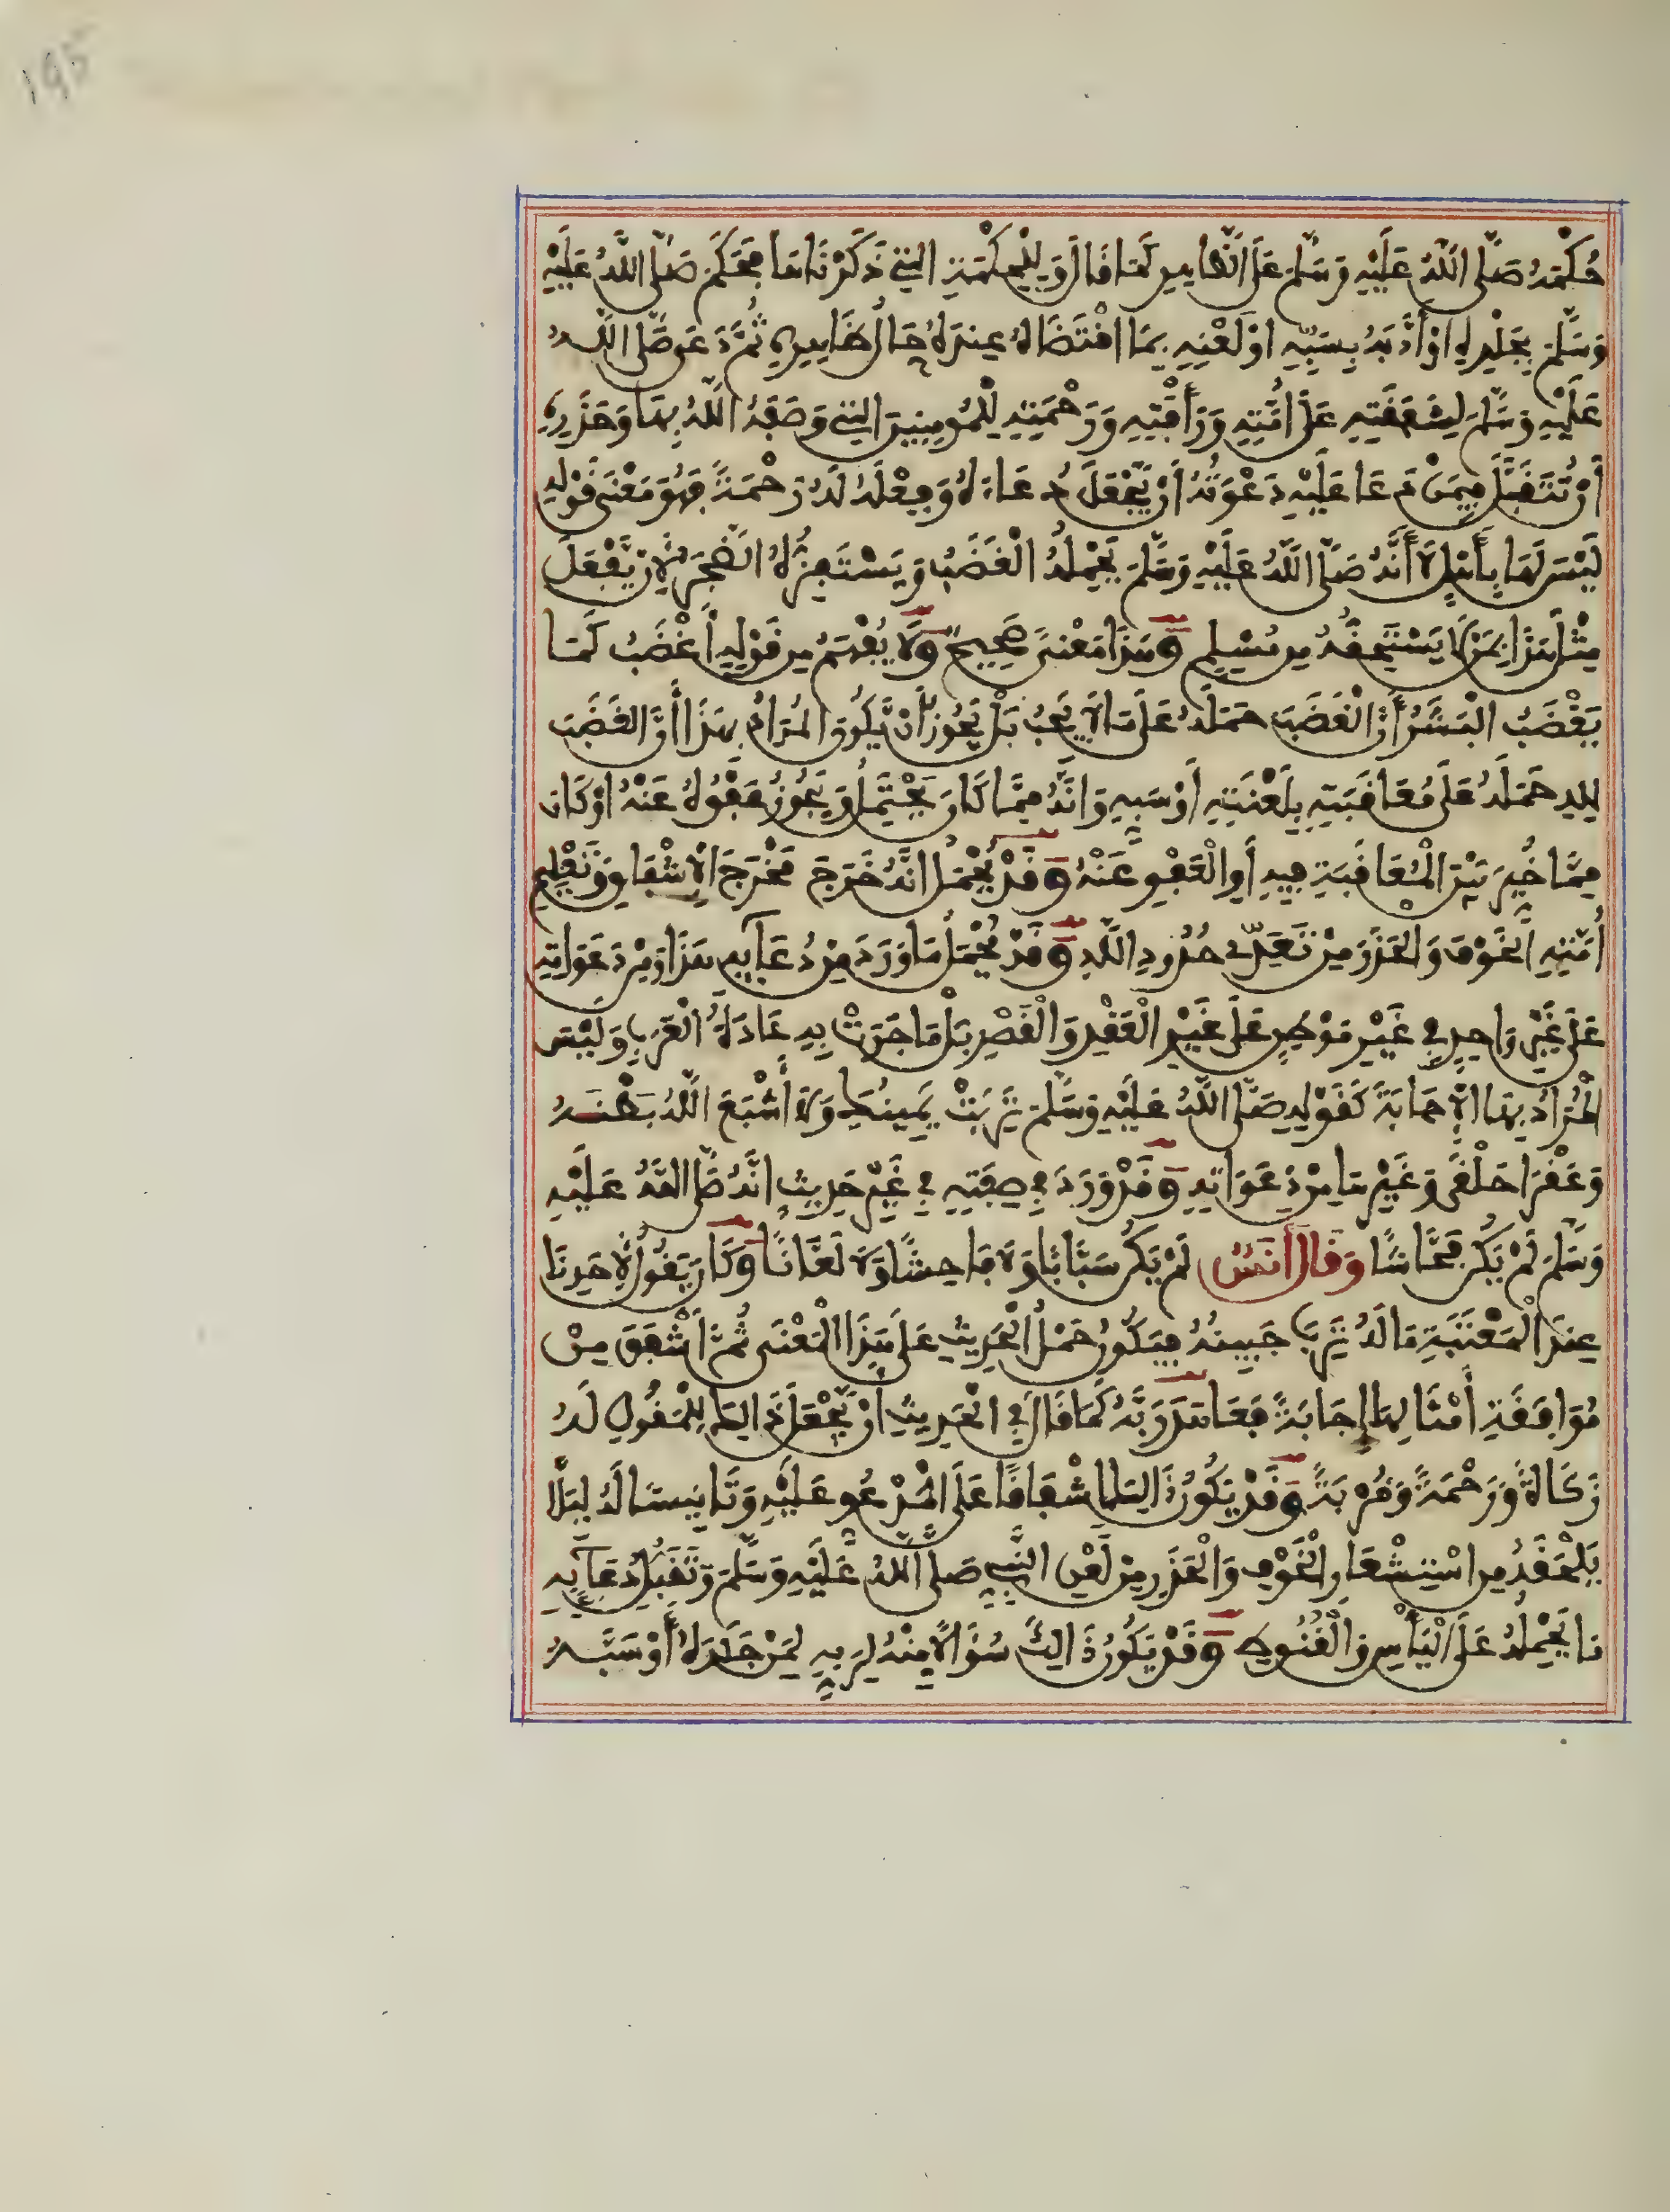 195
حُكْمُهُ صَلَّى اللَّهُ عَلَيْهِ وَسَلَّمَ عَلَى الظَّاهِرِ كَمَا قَالَ وَلِلْحِكْمَةِ الَّتِي ذَكَرْنَاهَا فَحَكَمَ صَلَّى اللَّهُ عَلَيْهِ
وَسَلَّمَ بِجَلْدِهِ أَوْ أَدَّبَهُ بِسَبِّهِ أَوْ لَعْنِهِ بِمَا اقْتَضَاهُ عِنْدَهُ حَالُ ظَاهِرِهِ ثُمَّ دَعَا صَلَّى اللَّهُ
عَلَيْهِ وَسَلَّمَ لِشَفَقَتِهِ عَلَى أُمَّتِهِ وَرَأْفَتِهِ وَرَحْمَتِهِ لِلْمُومِنِينَ الَّتِي وَصَفَهُ اللَّهُ بِهَا وَحَذَرِهِ
أَنْ تُتَقَبَّلَ فِيمَنْ دَعَا عَلَيْهِ دَعْوَتُهُ أَنْ يَجْعَلَ دُعَاءَهُ وَفِعْلَهُ لَهُ رَحْمَةً فَهُوَ مَعْنَى قَوْلِهِ
لَيْسَ لَهَا بِأَهْلٍ لَا أَنَّهُ صَلَّى اللَّهُ عَلَيْهِ وَسَلَّمَ يَحْمِلُهُ الْغَضَبُ وَيَسْتَفِزُّهُ الضَّجَرُ لِأَنْ يَفْعَلَ
مِثْلَ هَذَا بِمَنْ لَا يَسْتَحِقُّهُ مِن مُسْلِمٍ وَهَذَا مَعْنًى صَحِيحٌ وَلَا يُفْهَمُ مِن قَوْلِهِ أَغْضَبُ كَمَا
يَغْضَبُ الْبَشَرُ أَنَّ الْغَضَبَ حَمَلَهُ عَلَى مَا لَا يَجِبُ بَلْ يَجُوزُ أَنْ يَكُونَ الْمُرَادُ بِهَذَا أَنَّ الْغَضَبَ
لِلهِ حَمَلَهُ عَلَى مُعَاقَبَتِهِ بِلَعْنَتِهِ أَوْ سَبِّهِ وَأَنَّهُ مِمَّا كَانَ يَحْتَمِلُ وَيَجُوزُ عَفْوُهُ عَنْهُ أَوْ كَانَ
مِمَّا خُيِّرَ بَيْنَ الْمُعَاقَبَةِ فِيهِ أَوِ الْعَفْوِ عَنْهُ وَقَدْ يُحْمَلُ أَنَّهُ خَرَجَ مَخْرَجَ الْإِشْفَاقِ وَتَعْلِيمِ
أُمَّتِهِ الْخَوْفَ وَالْحَذَرَ مِنْ تَعَدِّي حُدُودِ اللَّهِ وَقَدْ يُحْمَلُ مَا وَرَدَ مِنْ دُعَائِهِ هَذَا وَمِنْ دَعَوَاتِهِ
عَلَى غَيْرِ وَاحِدٍ فِي غَيْرِ مَوْطِنٍ عَلَى غَيْرِ الْعَقْدِ وَالْقَصْدِ بَلْ مَا جَرَتْ بِهِ عَادَةُ الْعَرَبِ وَلَيْسَ
الْمُرَادُ بِهَا الْإِجَابَةَ كَقَوْلِهِ صَلَّى اللَّهُ عَلَيْهِ وَسَلَّمَ تَرِبَتْ يَمِينُكَ وَلَا أَشْبَعَ اللَّهُ بَطْنَهُ
وَعَقْرَا حَلْقَى وَغَيْرِهَا مِنْ دَعَوَاتِهِ وَقَدْ وَرَدَ فِي صِفَتِهِ فِي غَيْرِ حَدِيثٍ أَنَّهُ صَلَّى اللَّهُ عَلَيْهِ
وَسَلَّمَ لَمْ يَكُنْ فَحَّاشًا وَقَالَ أَنَسٌ لَمْ يَكُنْ سَبَّابًا وَلَا فَاحِشًا وَلَا لَعَّانًا وَكَانَ يَقُولُ لِأَحَدِنَا
عِنْدَ الْمَعْتَبَةِ مَا لَهُ تَرِبَ جَبِينُهُ فَيَكُونُ حَمْلُ الْحَدِيثِ عَلَى هَذَا الْمَعْنَى ثُمَّ أَشْفَقَ مِنْ
مُوَافَقَةِ أَمْثَالِهَا إِجَابَةً فَعَاهَدَ رَبَّهُ كَمَا قَالَ فِي الْحَدِيثِ أَنْ يَجْعَلَ ذَالِكَ لِلْمَقُولِ لَهُ
زَكَاةً وَرَحْمَةً وَقُرْبَةً وَقَدْ يَكُونُ ذَالِكَ إِشْفَاقًا عَلَى الْمَدْعُوِّ عَلَيْهِ وَتَانِيسًا لَهُ لِيَلَّا
يَلْحَقَهُ مِنِ اسْتِشْعَارِ الْخَوْفِ وَالْحَذَرِ مِنْ لَعْنِ النَّبِيِّ صَلَّى اللَّهُ عَلَيْهِ وَسَلَّمَ وَتَقَبُّلِ دُعَائِهِ
مَا يَحْمِلُهُ عَلَى الْيَأْسِ وَالْقُنُوطِ وَقَدْ يَكُونُ ذَالِكَ سُؤَالًا مِنْهُ لِرَبِّهِ لِمَنْ جَلَدَهُ أَوْ سَبَّهُ